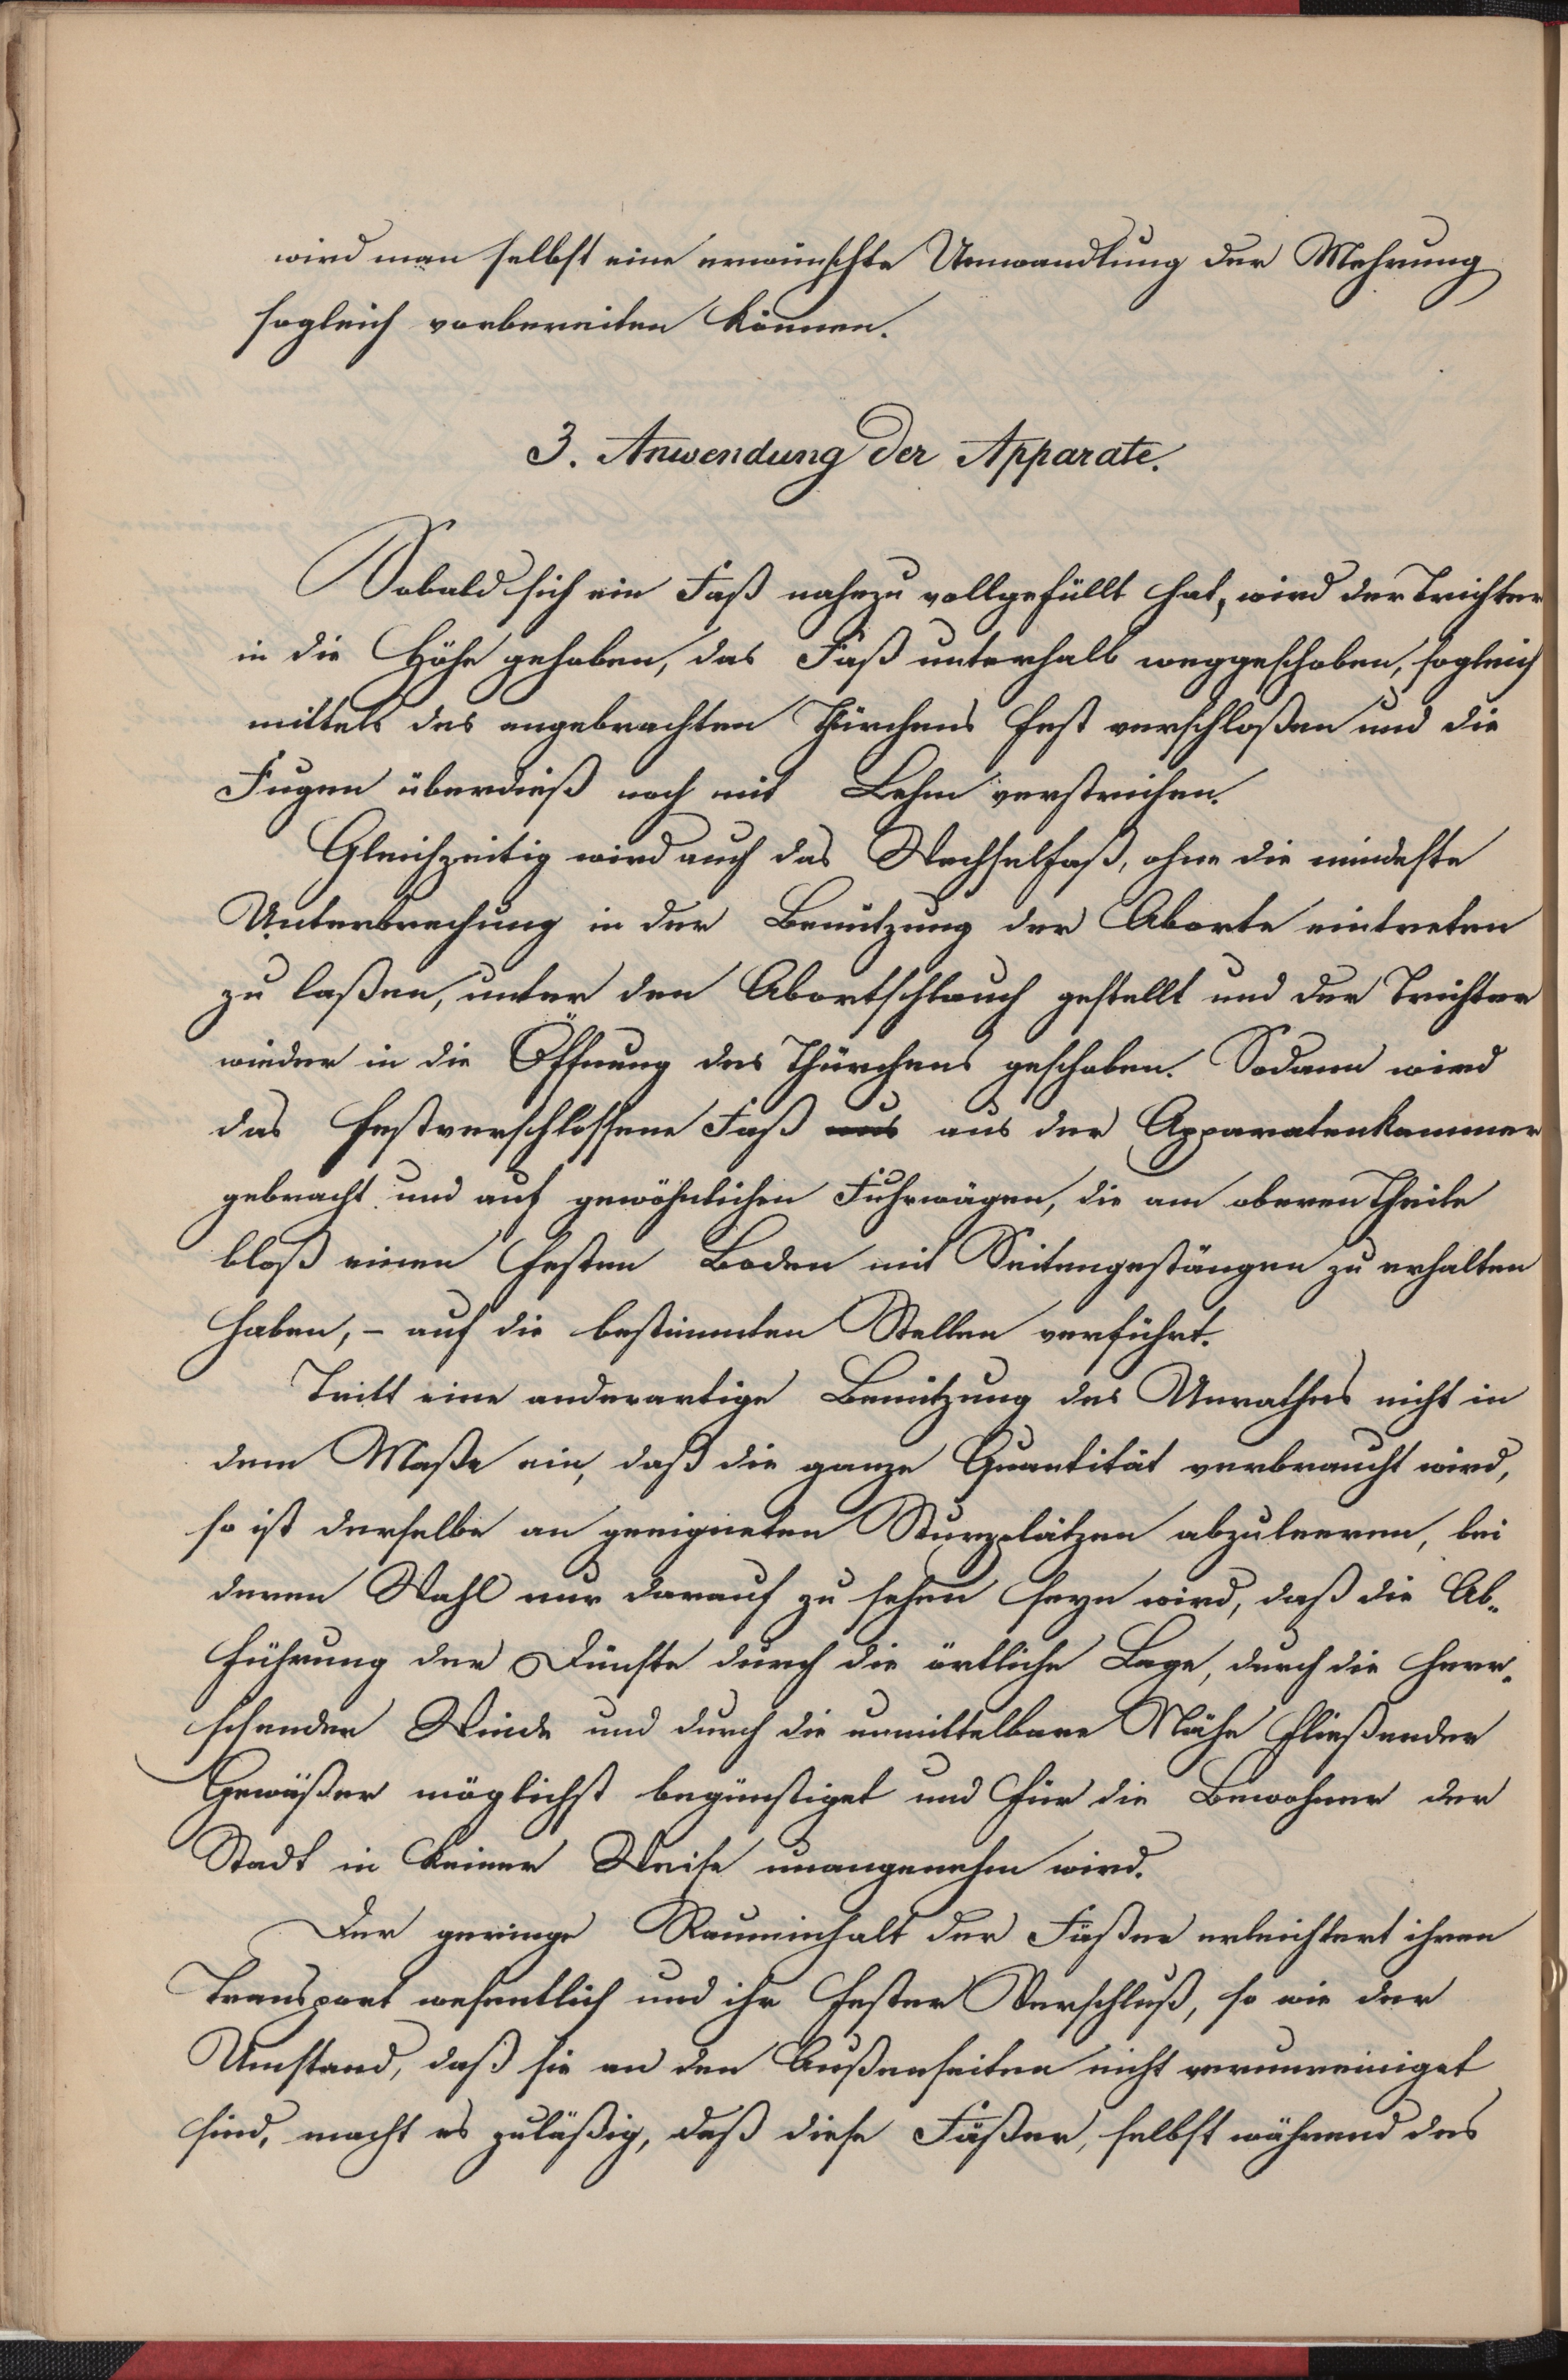 wird man selbst eine erwünschte Umwandlung der Mehrung
sogleich vorbereiten können.
3. Anwendung der Apparate.
Sobald sich ein Faß nahezu vollgefüllt hat, wird der Trichter
in die Höhe gehoben, das Faß unterhalb weggeschoben, sogleich
mittels des angebrachten Thürchens fest verschloßen und die
Fugen überdieß noch mit Lehm verstrichen.
Gleichzeitig wird auch das Wechselfaß, ohne die mindeste
Unterbrechung in der Benützung der Aborte eintreten
zu laßen, unter den Abortschlauch gestellt und der Trichter
wieder in die Öffnung des Thürchens geschoben. Sodann wird
das festverschlossene Faß aus aus der Apparatenkammer
gebracht und auf gewöhnlichen Fuhrwägen, die am oberen Theile
bloß einen festen Boden mit Seitengestängen zu erhalten
haben, – auf die bestimmten Stellen verführt.
Tritt eine anderartige Benützung des Unrathes nicht in
dem Maße ein, daß die ganze Quantität verbraucht wird,
so ist derselbe an geeigneten Sturzplätzen abzuleeren, bei
deren Wahl nur darauf zu sehen seyn wird, daß die Ab-
führung der Dünste durch die örtliche Lage, durch die herr-
schender Winde und durch die unmittelbare Nähe fließender
Gewäßer möglichst begünstiget und für die Bewohner der
Stadt in keiner Weise unangenehm wird.
Der geringe Rauminhalt der Fäßer erleichtert ihren
Transport wesentlich und ihr fester Verschluß, so wie der
Umstand, daß sie an den Außenseiten nicht verunreiniget
sind, macht es zuläßig, daß diese Fäßer, selbst während des